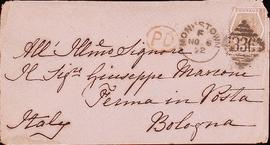 MONKSTOWN
F
NO 6
92
P.D.
336
All Illmo Signore
Il Sigre Giuseppe Marconi
Ferma in Posta
Italy Bologna